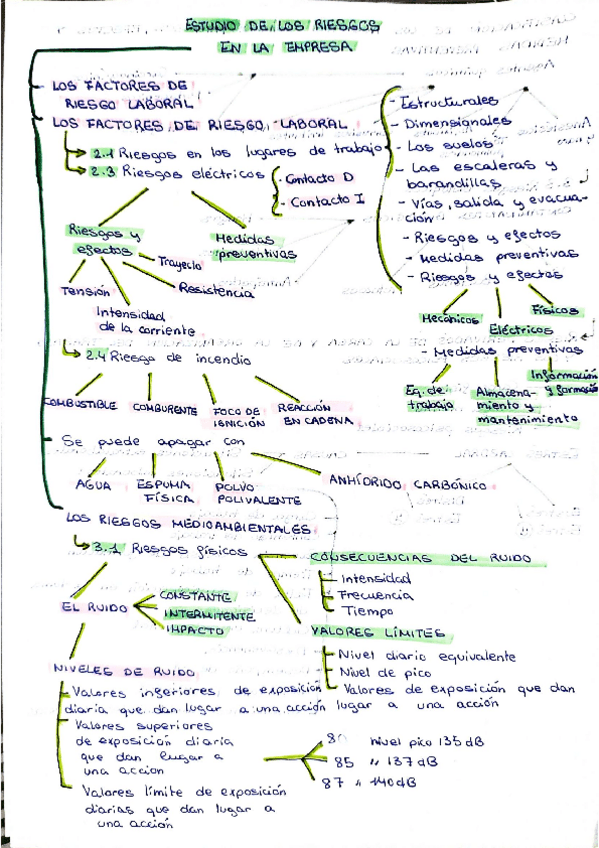 ESTUDIO DE LOS RIESGOS
EN LA EMPRESA
LOS FACTORES DE
RIESGO LABORAL
LOS FACTORES DE RIESGO LABORAL
2.1 Riesgos en los lugares de trabajo
- Estructurales
- Dimensionales
- Los suelos
- Las escaleras y
barandillas
- Vías, salida y evacua-
ción
- Riesgos y efectos
- Medidas preventivas
- Riesgos y efectos
Mecánicos
Eléctricos
Físicos
- Medidas preventivas
Eq. de
trabajo
Almacena-
miento y
mantenimiento
Información
y formación
2.3 Riesgos eléctricos
- Contacto D
- Contacto I
Riesgos y
efectos
Medidas
preventivas
Trayecto
Resistencia
Tensión
Intensidad
de la corriente
2.4 Riesgo de incendio
COMBUSTIBLE
COMBURENTE
FOCO DE
IGNICIÓN
REACCIÓN
EN CADENA
Se puede apagar con
AGUA
ESPUMA
FÍSICA
POLVO
POLIVALENTE
ANHÍDRIDO CARBÓNICO
LOS RIESGOS MEDIOAMBIENTALES
3.1 Riesgos físicos
EL RUIDO
CONSTANTE
INTERMITENTE
IMPACTO
CONSECUENCIAS DEL RUIDO
Intensidad
Frecuencia
Tiempo
VALORES LÍMITES
Nivel diario equivalente
Nivel de pico
Valores de exposición que dan
lugar a una acción
NIVELES DE RUIDO
Valores inferiores de exposición
diaria que dan lugar a una acción
Valores superiores
de exposición diaria
que dan lugar a
una acción
Valores límite de exposición
diarias que dan lugar a
una acción
80 nivel pico 135 dB
85 " 137 dB
87 " 140 dB